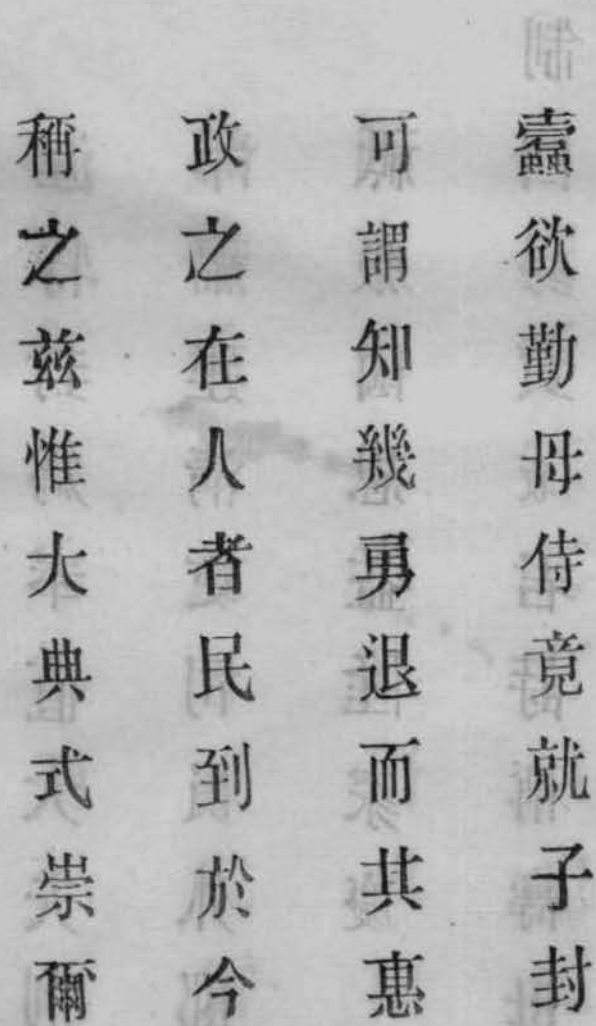 蠧欲勤母侍竟就子封
可謂知幾勇退而其惠
政之在人者民到於今
稱之茲惟大典式崇爾